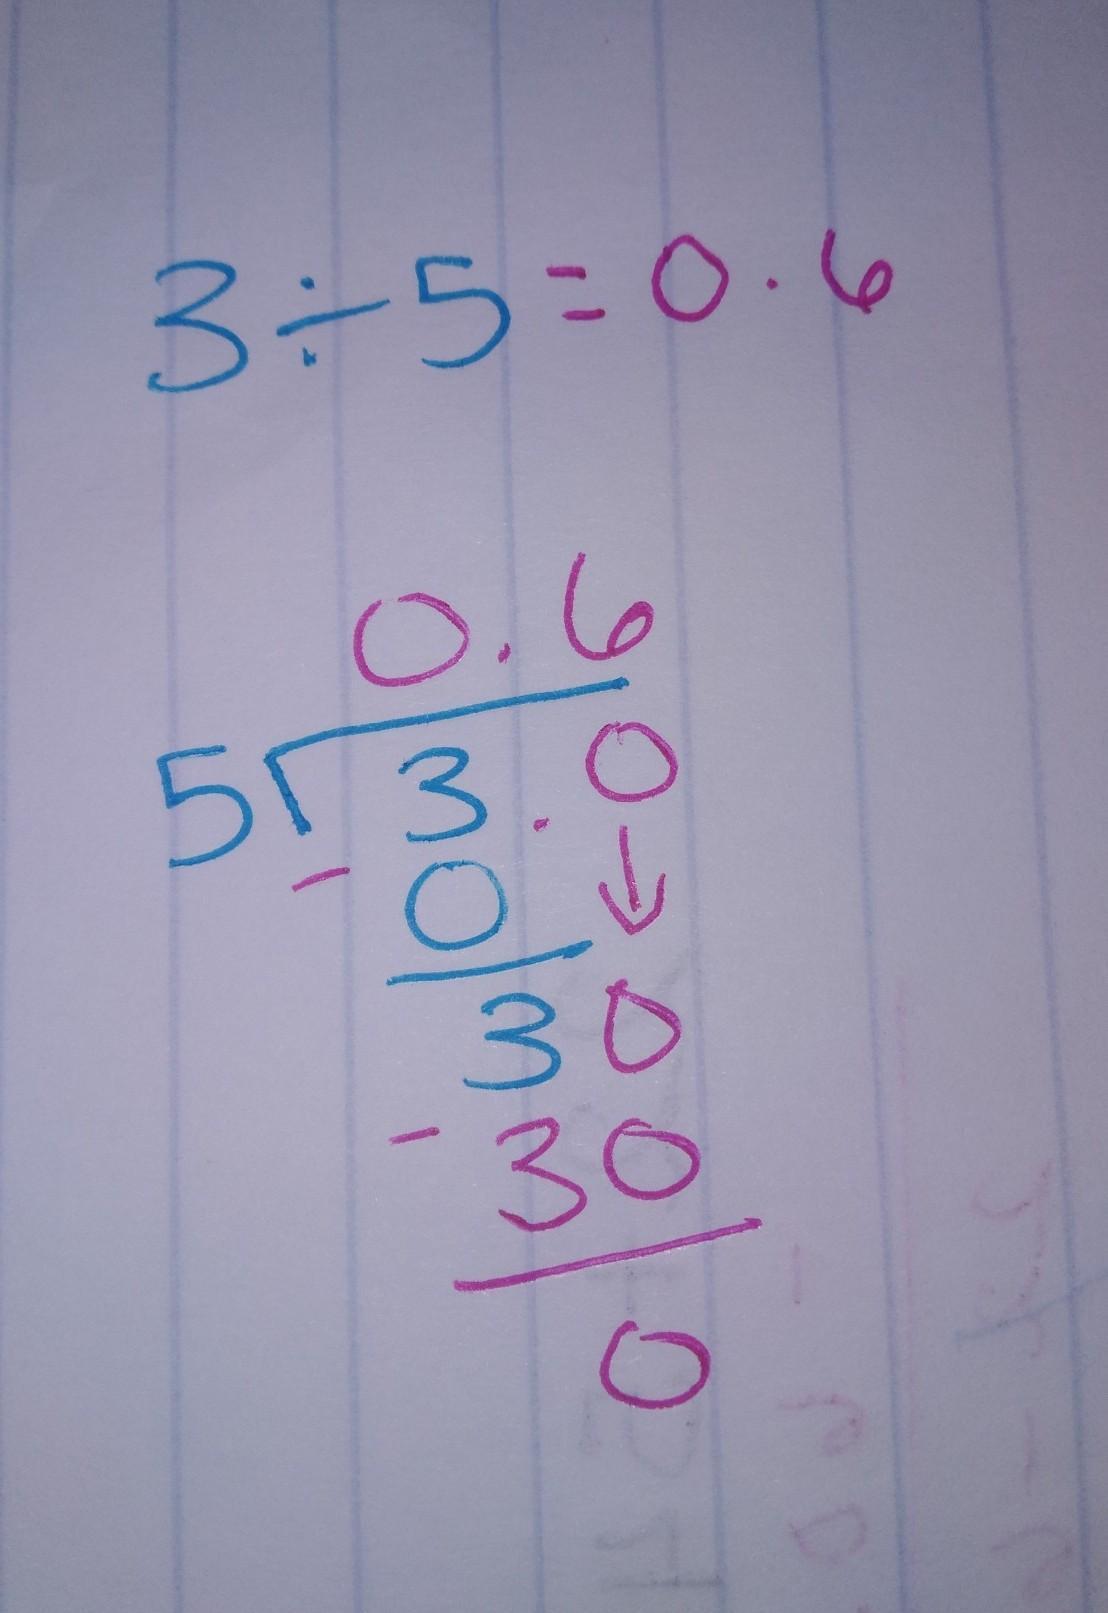 3÷5=0.6
0.6
5 3.0
- 0 ↓
30
- 30
0